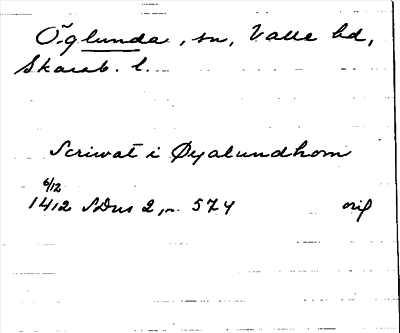 Öglunda, sn, Valle hd,
Skarab. l.
Scriwat i Øyalundhom
6/12
1412 SDns 2, n. 574 orig